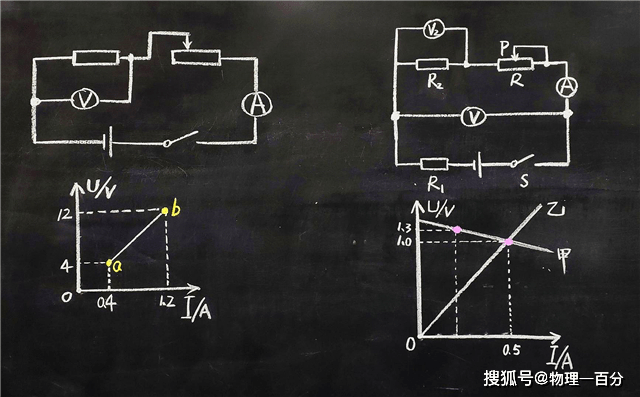 V
A
U/V
12
b
4
a
0
0.4
1.2
I/A
V₂
P
R₂
R
A
V
R₁
S
U/V
乙
1.3
1.0
甲
0
0.5
I/A
搜狐号@物理一百分